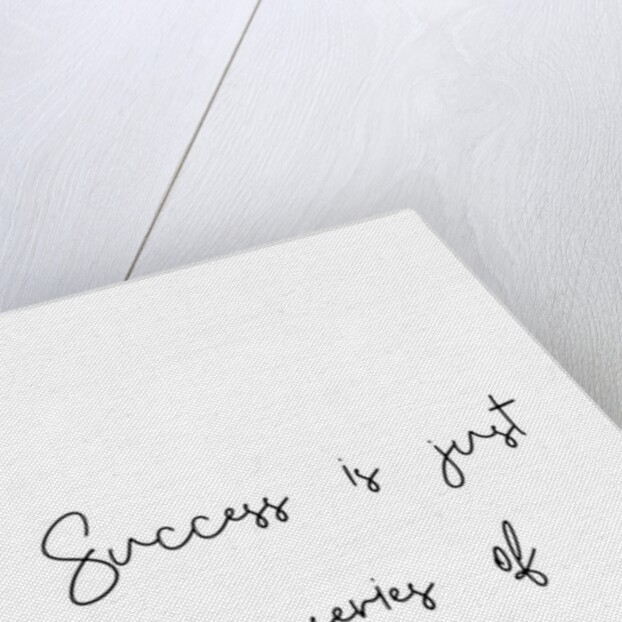 Success is just
series of